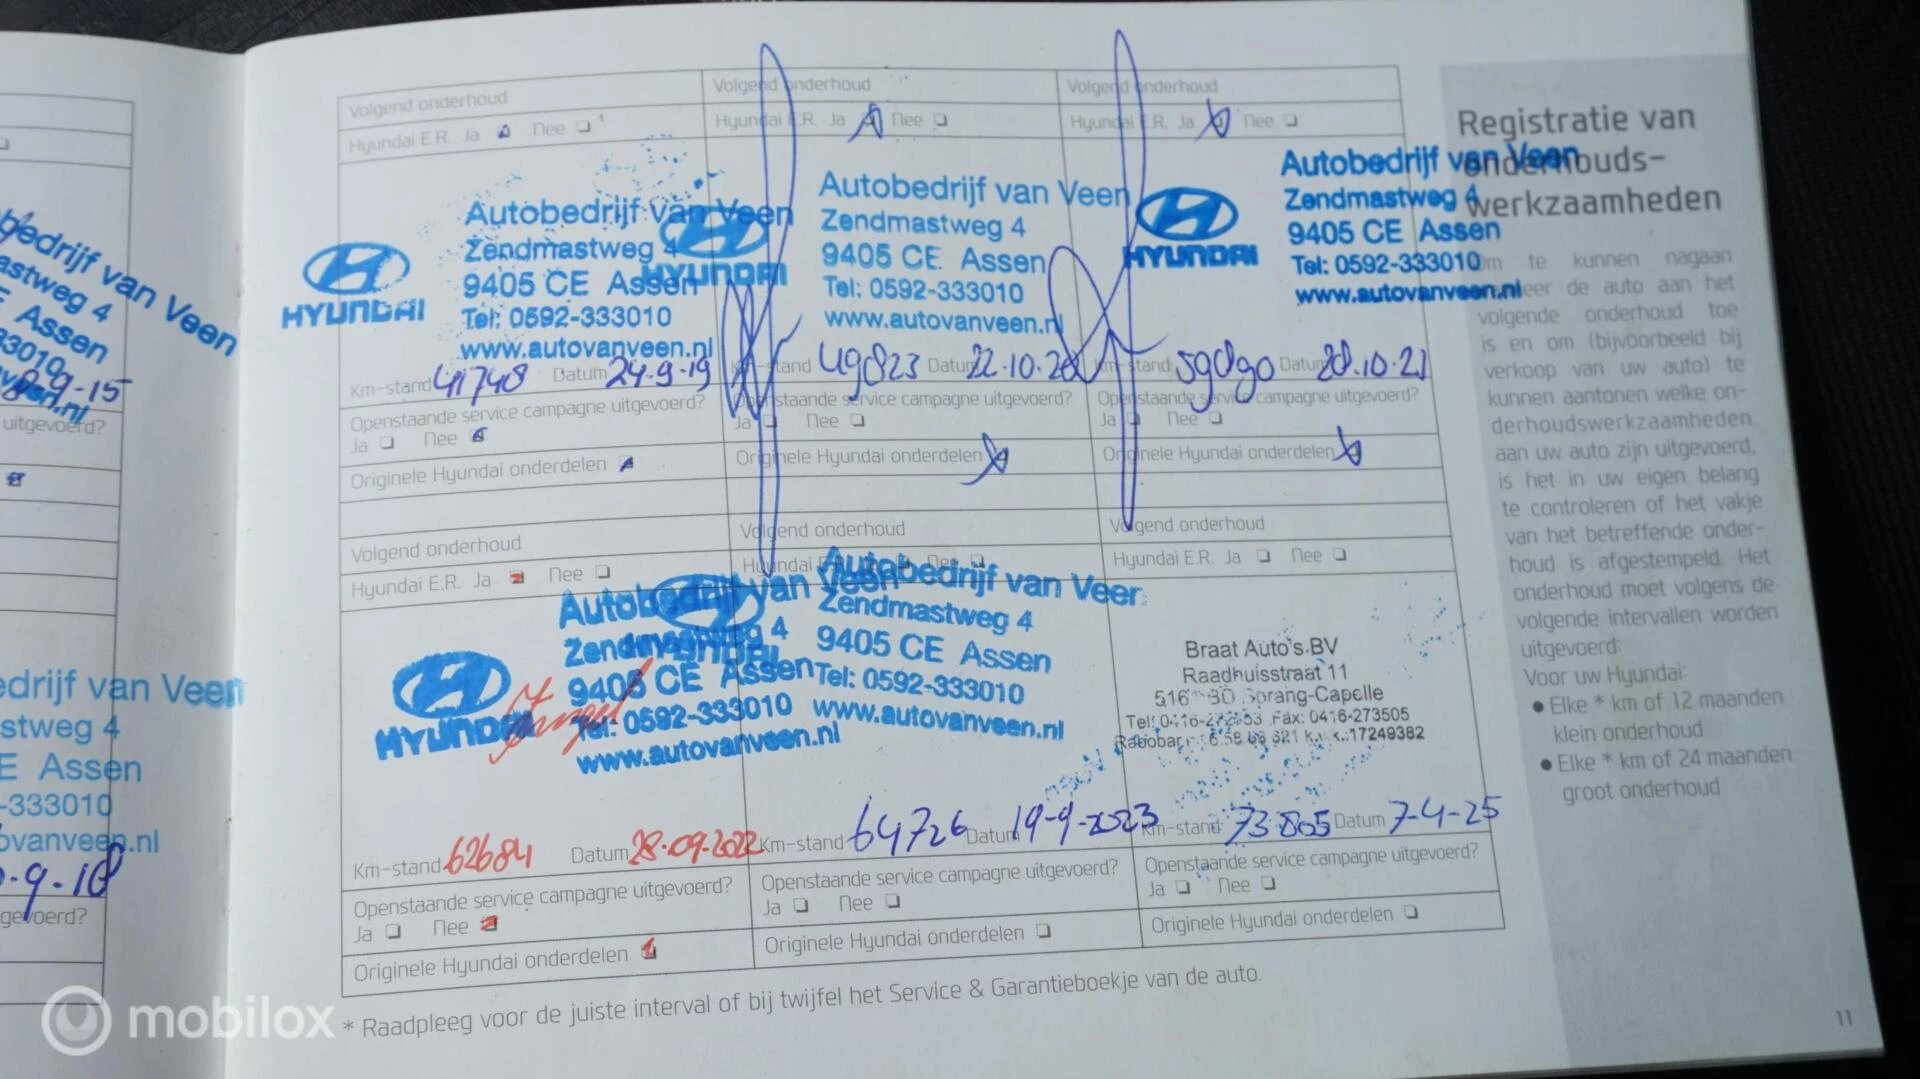 bedrijf van Veen
astweg 4
Assen
uitgevoerd?
edrijf van Veen
stweg 4
E Assen
-333010
ovanveen.nl
-9-18
gevoerd?
Volgend onderhoud
Hyundai E.R. Ja Nee
HYUNDAI
Autobedrijf van Veen
Zendmastweg 4
9405 CE Assen
Tel: 0592-333010
www.autovanveen.nl
Km-stand 41748 Datum 24.9.19
Openstaande service campagne uitgevoerd?
Ja Nee
Originele Hyundai onderdelen
Volgend onderhoud
Hyundai E.R. Ja Nee
HYUNDAI
Autobedrijf van Veen
Zendmastweg 4
9405 CE Assen
Tel: 0592-333010
www.autovanveen.nl
Km-stand 49823 Datum 22.10.20
Openstaande service campagne uitgevoerd?
Ja Nee
Originele Hyundai onderdelen
Volgend onderhoud
Hyundai E.R. Ja Nee
HYUNDAI
Autobedrijf van Veen
Zendmastweg 4
9405 CE Assen
Tel: 0592-333010
www.autovanveen.nl
Km-stand Datum 28.10.21
Openstaande service campagne uitgevoerd?
Ja Nee
Originele Hyundai onderdelen
Volgend onderhoud
Hyundai E.R. Ja Nee
HYUNDAI
Autobedrijf van Veen
Zendmastweg 4
9405 CE Assen
Tel: 0592-333010
www.autovanveen.nl
Km-stand 62684 Datum 28-09-2022
Openstaande service campagne uitgevoerd?
Ja Nee
Originele Hyundai onderdelen
Volgend onderhoud
Hyundai
Autobedrijf van Veen
Zendmastweg 4
9405 CE Assen
Tel: 0592-333010
www.autovanveen.nl
Km-stand 64726 Datum 19-9-2023
Openstaande service campagne uitgevoerd?
Ja Nee
Originele Hyundai onderdelen
Volgend onderhoud
Hyundai E.R. Ja Nee
Braat Auto's BV
Raadhuisstraat 11
Sprang-Capelle
Fax: 0416-273505
17249382
Km-stand 73805 Datum 7-4-25
Openstaande service campagne uitgevoerd?
Ja Nee
Originele Hyundai onderdelen
* Raadpleeg voor de juiste interval of bij twijfel het Service & Garantieboekje van de auto.
Registratie van
onderhouds-
werkzaamheden
Om te kunnen nagaan
wanneer de auto aan het
volgende onderhoud toe
is en om (bijvoorbeeld bij
verkoop van uw auto) te
kunnen aantonen welke on-
derhoudswerkzaamheden
aan uw auto zijn uitgevoerd,
is het in uw eigen belang
te controleren of het vakje
van het betreffende onder-
houd is afgestempeld. Het
onderhoud moet volgens de
volgende intervallen worden
uitgevoerd:
Voor uw Hyundai:
● Elke * km of 12 maanden
klein onderhoud
● Elke * km of 24 maanden
groot onderhoud
11
mobilox